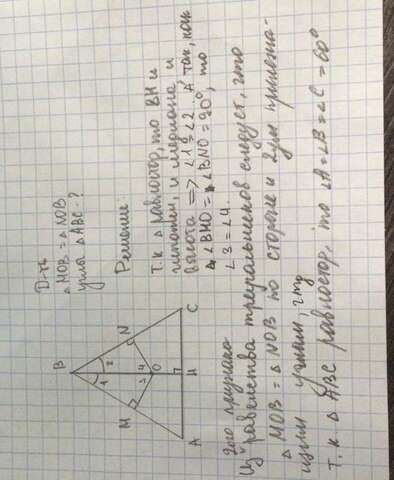 Д-ть
△MOB = △NOB
углы △ABC - ?
Решение
Т.к △ равностор, то BH и
биссектр, и медиана, и
высота => ∠1=∠2. А так, как
∠BMO = ∠BNO = 90°, то
∠3=∠4.
B
1
2
M
N
3
4
O
A
H
C
Из 2ого признака равенства треугольников следует, что
△MOB = △NOB по стороне и 2ум прилежа-
щим углам, чтд
Т.к. △ABC равностор, то ∠A=∠B=∠C=60°